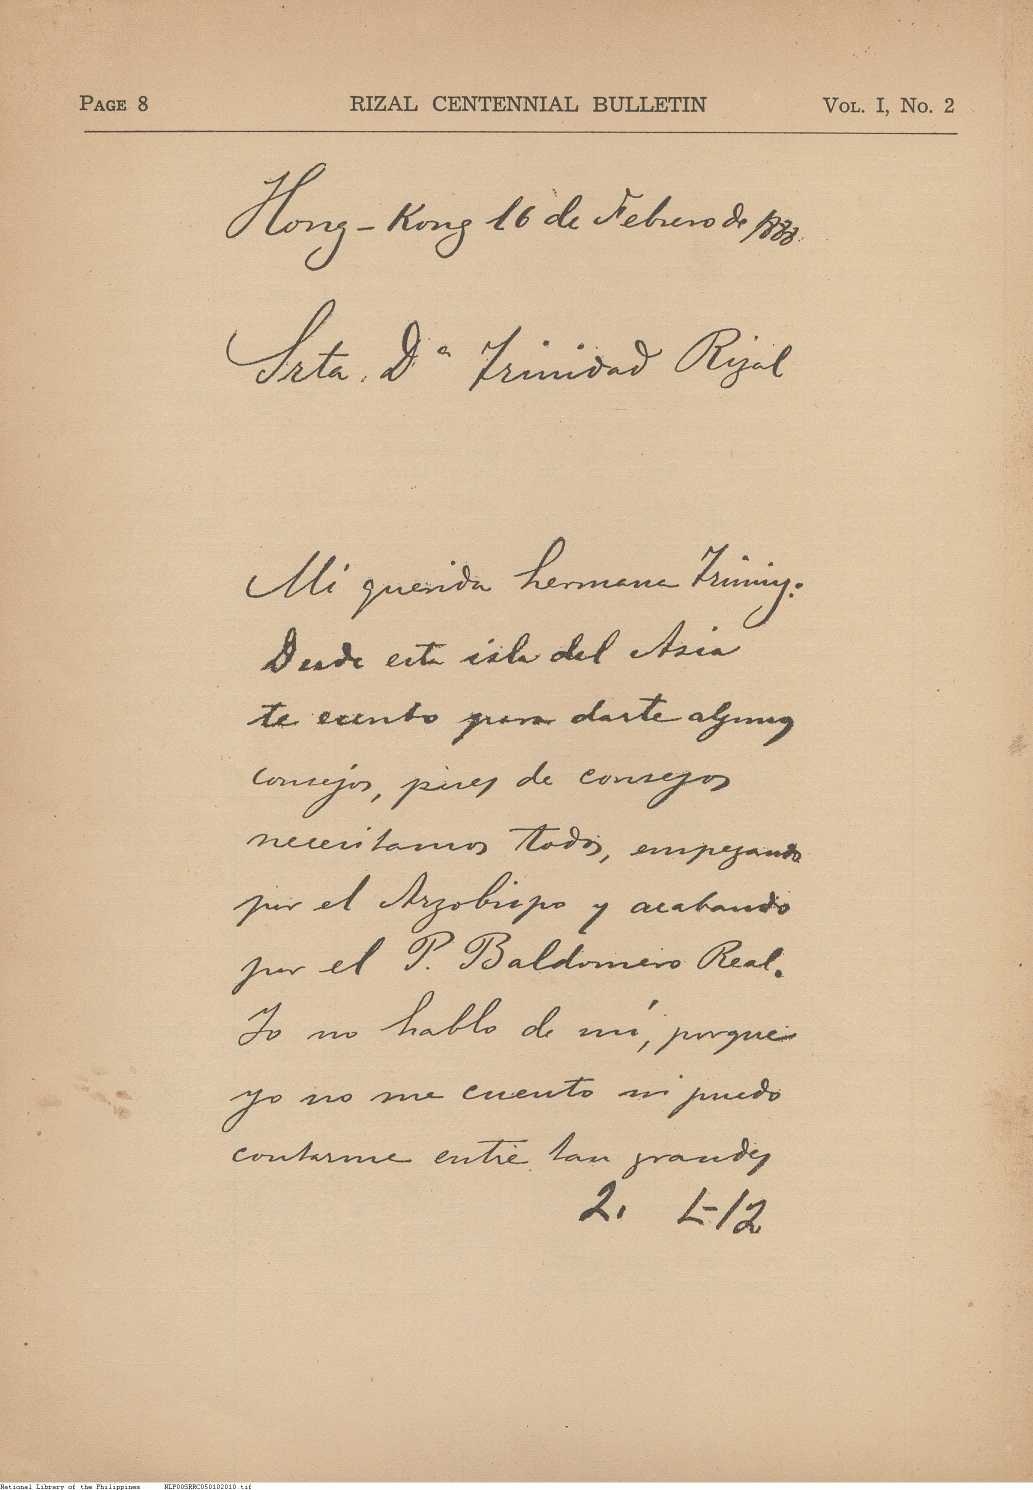 PAGE 8 RIZAL CENTENNIAL BULLETIN VOL. I, NO. 2
Hong-Kong 16 de Febrero de 1888.
Srta. Dª Trinidad Rizal
Mi querida hermana Triniy:
Desde esta isla del Asia
te escribo para darte algunos
consejos, pues de consejos
necesitamos todos, empezando
por el Arzobispo y acabando
por el P. Baldomero Real.
Yo no hablo de mí, porque
yo no me cuento ni puedo
contarme entre tan grandes
2. L-12
National Library of the Philippines NLP00SRRC050102010.tif